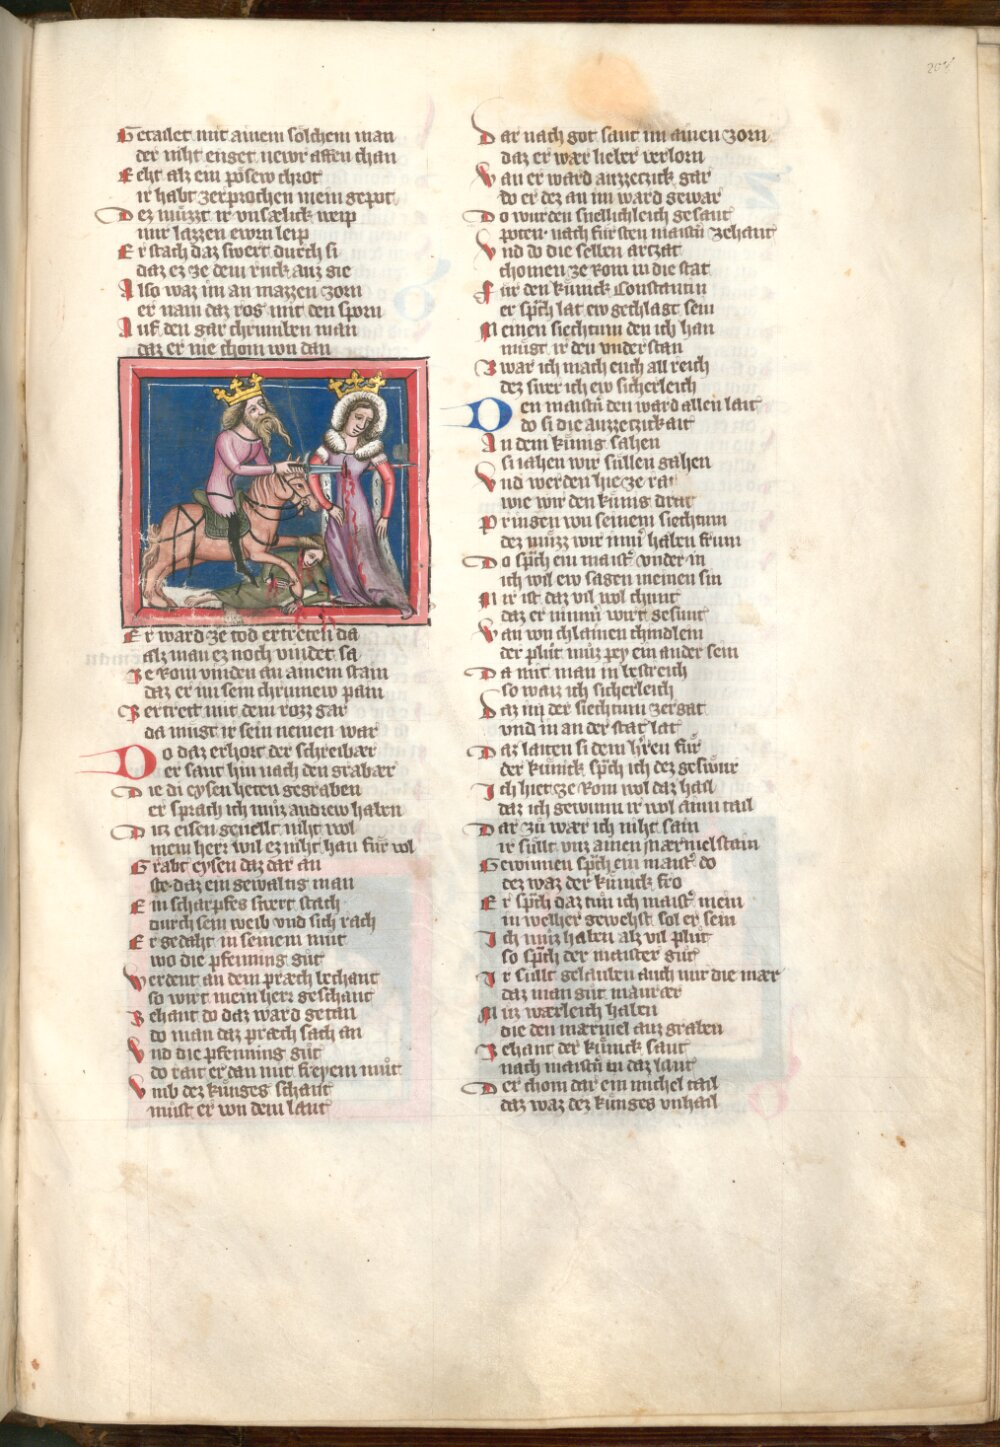 204
Getailet mit ainem sölchem man
der niht enget newr affen chan
Reht alz ein pösew chrot
ir habt zerprochen mein gepot
Dez müzzt ir vnsælick weip
mir lazzen ewrn leip
Er stach daz swert durch si
daz ez ze dem ruck auz gie
Also waz im an mazzen zorn
er nam daz ros mit den sporn
Auf den gar chrumben man
daz er nie chom von dan
Er ward ze tod ertreten da
alz man ez noch vindet sa
Ze Rom vinden an ainem stain
daz er im sein chrumew pain
Zertrett mit dem rozz gar
da mügt ir sein nemen war
Do daz erhort der schreibær
er sant hin nach den grabær
Die di eysen heten gegraben
er sprach ich müz andrew haben
Ditz eisen geuellt niht wol
mein herr wil ez niht han für vol
Grabt eysen daz dar an
ste daz ein gewaltig man
Ein scharpfes swert stach
durch sein weib vnd sich rach
Er gedaht in seinem mut
wo die pfenning güt
Werdent an dem præch bechant
so wirt mein herr geschant
Zehant do daz ward getan
do man daz præch sach an
Vnd die pfenning güt
do rait er dan mit freyem müt
Vmb dez künges schant
müst er von dem lant
Dar nach got sant im ainen zorn
daz er wær lieber verlorn
Wan er ward auzzetzick gar
do er dez an im ward gewar
Do wurden snellichleich gesant
poten nach fürsten maistn̄ zehant
Vnd do die selben artzat
chomen ze Rom in die stat
Für den künick Constantin
er sp̄ch lat ew gechlagt sein
Meinen siechtum den ich han
mügt ir den vnderstan
Zwar ich mach euch all reich
dez swer ich ew sicherleich
Den maistn̄ den ward allen lait
do si die auzzetzickait
An dem künig sahen
si iahen wir süllen gahen
Vnd werden hie ze rat
wie wir den künig drat
Pringen von seinem siechtum
dez müzz wir im̄ haben frum
Do sp̄ch ein maist̾ vnder in
ich wil ew sagen meinen sin
Mir ist daz vil wol chunt
daz er nimm̄ wirt gesunt
Wan von chlainen chindlein
der plüt müz pey ein ander sein
Da mit man in bestreich
so waiz ich sicherleich
Daz im der siechtum zergat
vnd in an der stat lat
Daz laiten si dem h̾ren für
der künick sp̄ch ich dez geswür
Ich hiet ze Rom wol daz hail
daz ich gewinn ir wol ainn tail
Dar zü wær ich niht sain
ir süllt vnz ainen mærmelstain
Gewinnen sp̄ch ein maist̾ do
dez waz der künick fro
Er sp̄ch daz tün ich maist̾ mein
in welher gewehst sol er sein
Ich müz haben alz vil plüt
so sp̄ch der maister güt
Ir süllt gelauben auch mir die mær
daz man güt maurær
Müz wærleich haben
die den mærmel auz graben
Zehant der künick sant
nach maistn̄ in daz lant
Der chom dar ein michel tail
daz waz dez künges vnhail